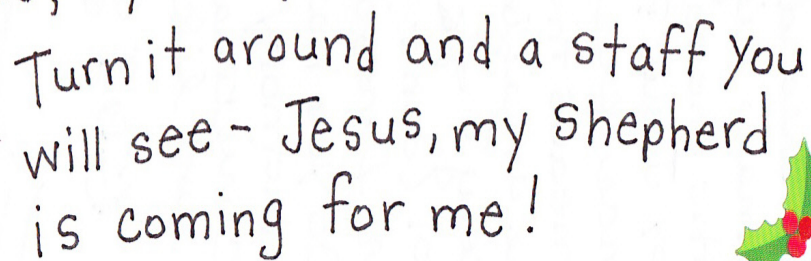 Turn it around and a staff you
will see - Jesus, my shepherd
is coming for me!